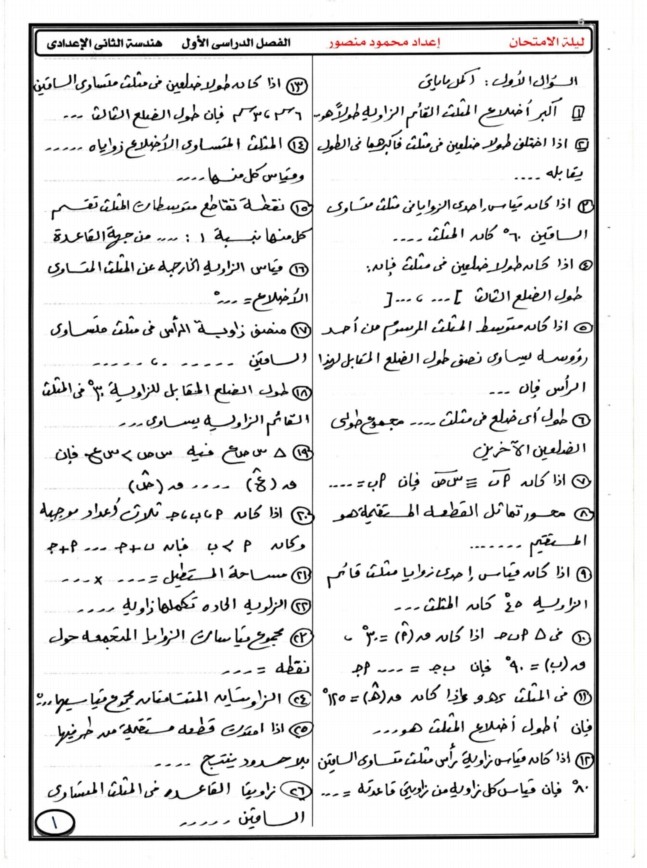 ليلة الامتحان إعداد محمود منصور الفصل الدراسى الأول هندسة الثانى الإعدادى
السؤال الأول: أكمل ما يأتى
١ أكبر أضلاع المثلث القائم الزاوية طولاً هو..
٢ اذا اختلف طولا ضلعين فى مثلث فأكبرهما فى الطول
يقابله ....
٣ اذا كان قياس إحدى الزوايا فى مثلث متساوى
الساقين ٦٠° كان المثلث ....
٤ اذا كان طولا ضلعين فى مثلث فإن:
طول الضلع الثالث ]... ، ...[
٥ اذا كان متوسط المثلث المرسوم من أحد
رؤوسه يساوى نصف طول الضلع المقابل لهذا
الرأس فإن ...
٦ طول أى ضلع فى مثلث .... مجموع طولى
الضلعين الآخرين
٧ اذا كان أب ≡ س ص فإن أب = ....
٨ محور تماثل القطعه المستقيمة هو
المستقيم .......
٩ اذا كان قياس إحدى زوايا مثلث قائم
الزاويه ٤٥° كان المثلث ...
١٠ فى Δ أ ب ح اذا كان ق(أ) = ٣٠° ،
ق(ب) = ٩٠° فإن ب ح = .... أ ح
١١ فى المثلث د ه و إذا كان ق(ه) = ١٢٥°
فإن أطول أضلاع المثلث هو...
١٢ اذا كان قياس زاوية رأس مثلث متساوى الساقين
٨٠° فإن قياس كل زاويه من زاويتى قاعدته = ...
١٣ اذا كان طولا ضلعين فى مثلث متساوى الساقين
٦سم ، ٣سم فإن طول الضلع الثالث ...
١٤ المثلث المتساوى الأضلاع زواياه .....
وقياس كل منها ....
١٥ نقطة تقاطع متوسطات المثلث تقسم
كل منها بنسبة ١ : ... من جهة القاعدة
١٦ قياس الزاويه الخارجة عن المثلث المتساوى
الأضلاع = ....°
١٧ منصف زاوية الرأس فى مثلث متساوى
الساقين ..... ، .....
١٨ طول الضلع المقابل للزاوية ٣٠° فى المثلث
القائم الزاويه يساوى ...
١٩ Δ س ص ع فيه س ص > س ع فإن
ق(ع) .... ق(ص)
٢٠ اذا كان أ ، ب ، ح ثلاث أعداد موجبة
وكان أ > ب فإن ب + ح .... أ + ح
٢١ مساحة المستطيل = .... × ....
٢٢ الزاويه الحاده تكملها زاوية ....
٢٣ مجموع قياسات الزوايا المتجمعه حول
نقطه = ....
٢٤ الزاويتان المتتامتان مجموع قياسيهما ...°
٢٥ اذا امتدت قطعة مستقيمة من طرفيها
بلا حدود ينتج ....
٢٦ زاويتا القاعده فى المثلث المتساوى
الساقين .....
١